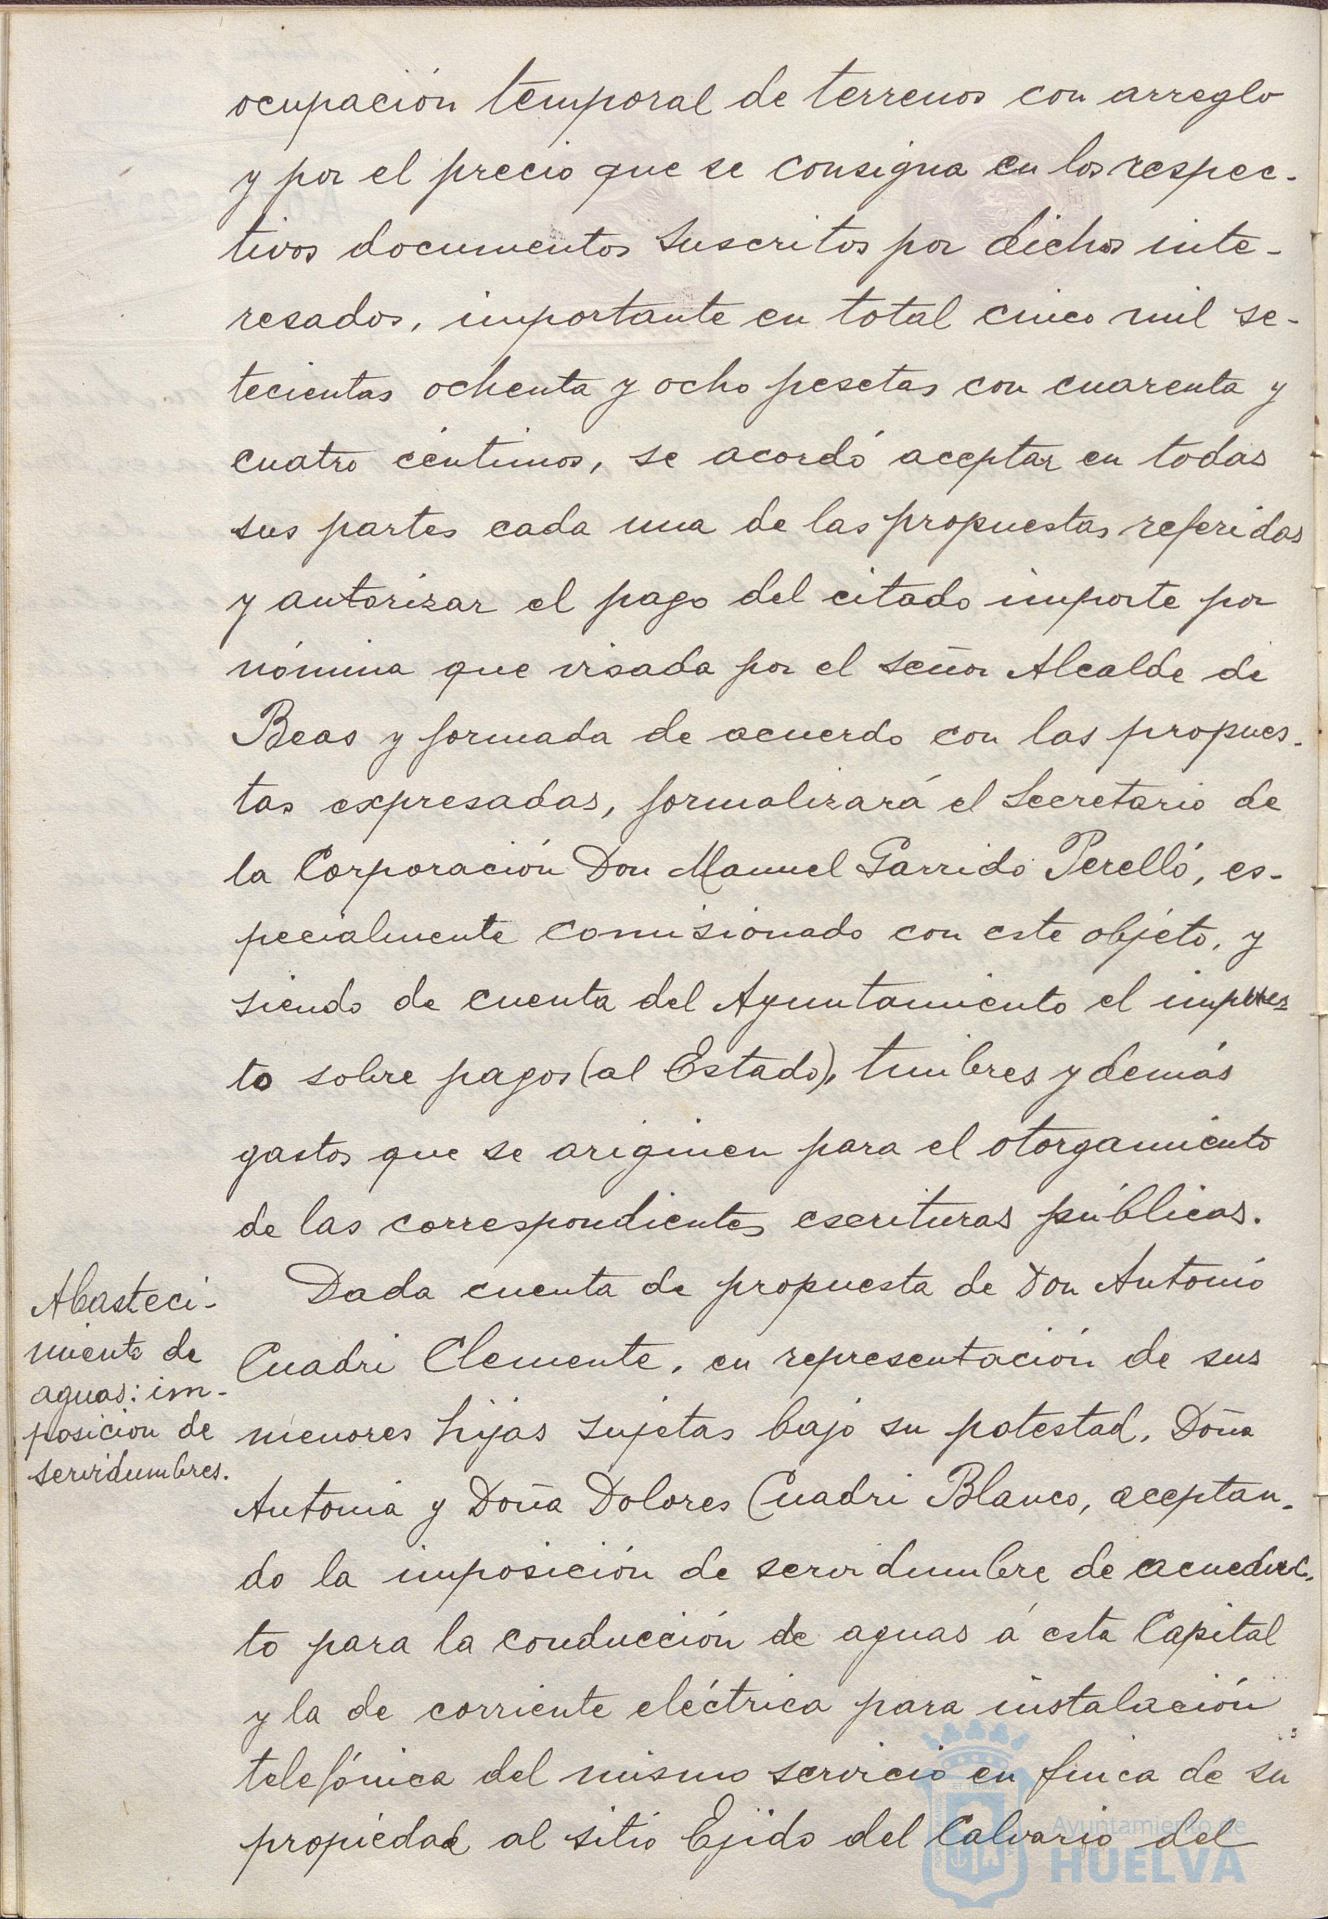 ocupación temporal de terrenos con arreglo
y por el precio que se consigna en los respec-
tivos documentos suscritos por dichos inte-
resados, importante en total cinco mil se-
tecientas ochenta y ocho pesetas con cuarenta y
cuatro céntimos, se acordó aceptar en todas
sus partes cada una de las propuestas referidas
y autorizar el pago del citado importe por
nómina que visada por el señor Alcalde de
Beas y formada de acuerdo con las propues-
tas expresadas, formalizará el Secretario de
la Corporación Don Manuel Garrido Perelló, es-
pecialmente comisionado con este objéto, y
siendo de cuenta del Ayuntamiento el impues-
to sobre pagos (al Estado), timbres y demás
gastos que se originen para el otorgamiento
de las correspondientes escrituras públicas.
Abasteci-
miento de
aguas: im-
posicion de
servidumbres.
Dada cuenta de propuesta de Don Antonio
Cuadri Clemente, en representación de sus
menores hijas sujetas bajo su potestad, Doña
Antonia y Doña Dolores Cuadri Blanco, aceptan-
do la imposición de servidumbre de acueduc-
to para la conducción de aguas á esta Capital
y la de corriente eléctrica para instalación
telefónica del mismo servicio en finca de su
propiedad al sitio Ejido del Calvario del
Ayuntamiento de
HUELVA